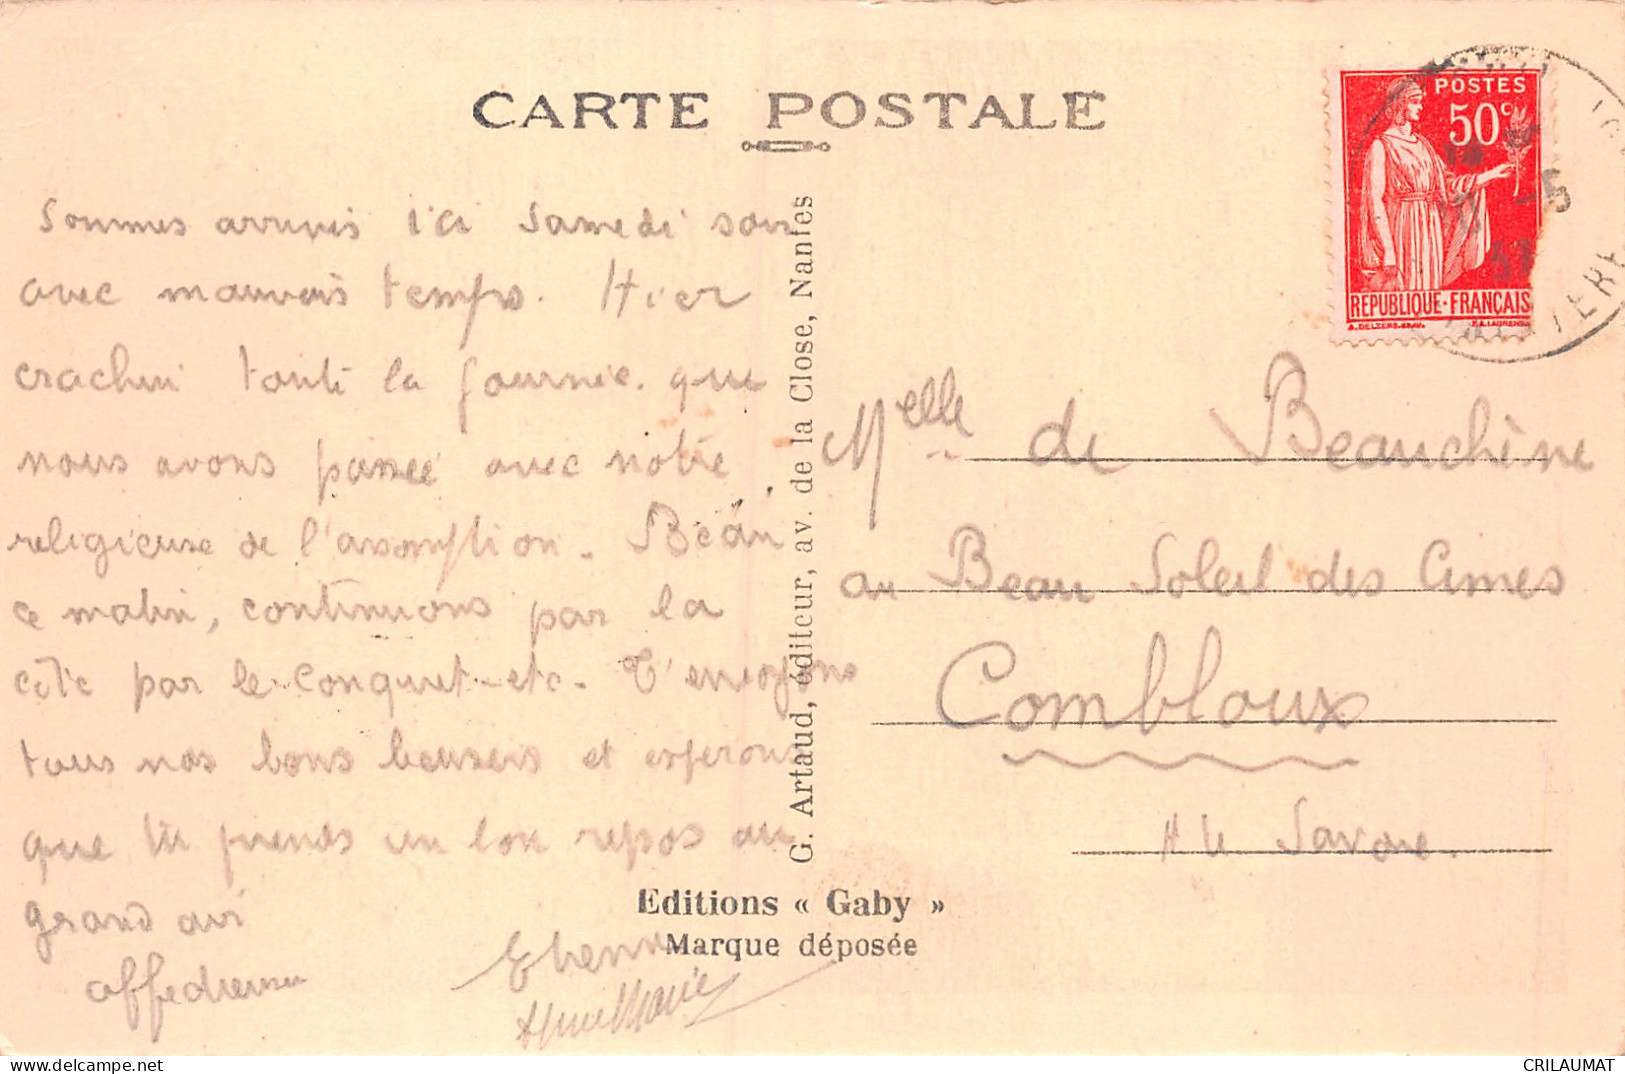 CARTE POSTALE
POSTES
50c
REPUBLIQUE·FRANÇAIS
37
Sommes arrivés ici Samedi soir
avec mauvais temps. Hier
crachin toute la journée. que
nous avons passée avec notre
religieuse de l'assomption. Beau
ce matin, continuons par la
côte par le Conquet-etc. T'envoyons
tous nos bons baisers et esperons
que tu prends un bon repos au
grand air
affectueux
Etienne
Anne Marie
G. Artaud, éditeur, av. de la Close, Nantes
Editions « Gaby »
Marque déposée
Melle de Beauchène
au Beau Soleil des Cimes
Combloux
Hte Savoie.
CRILAUMAT